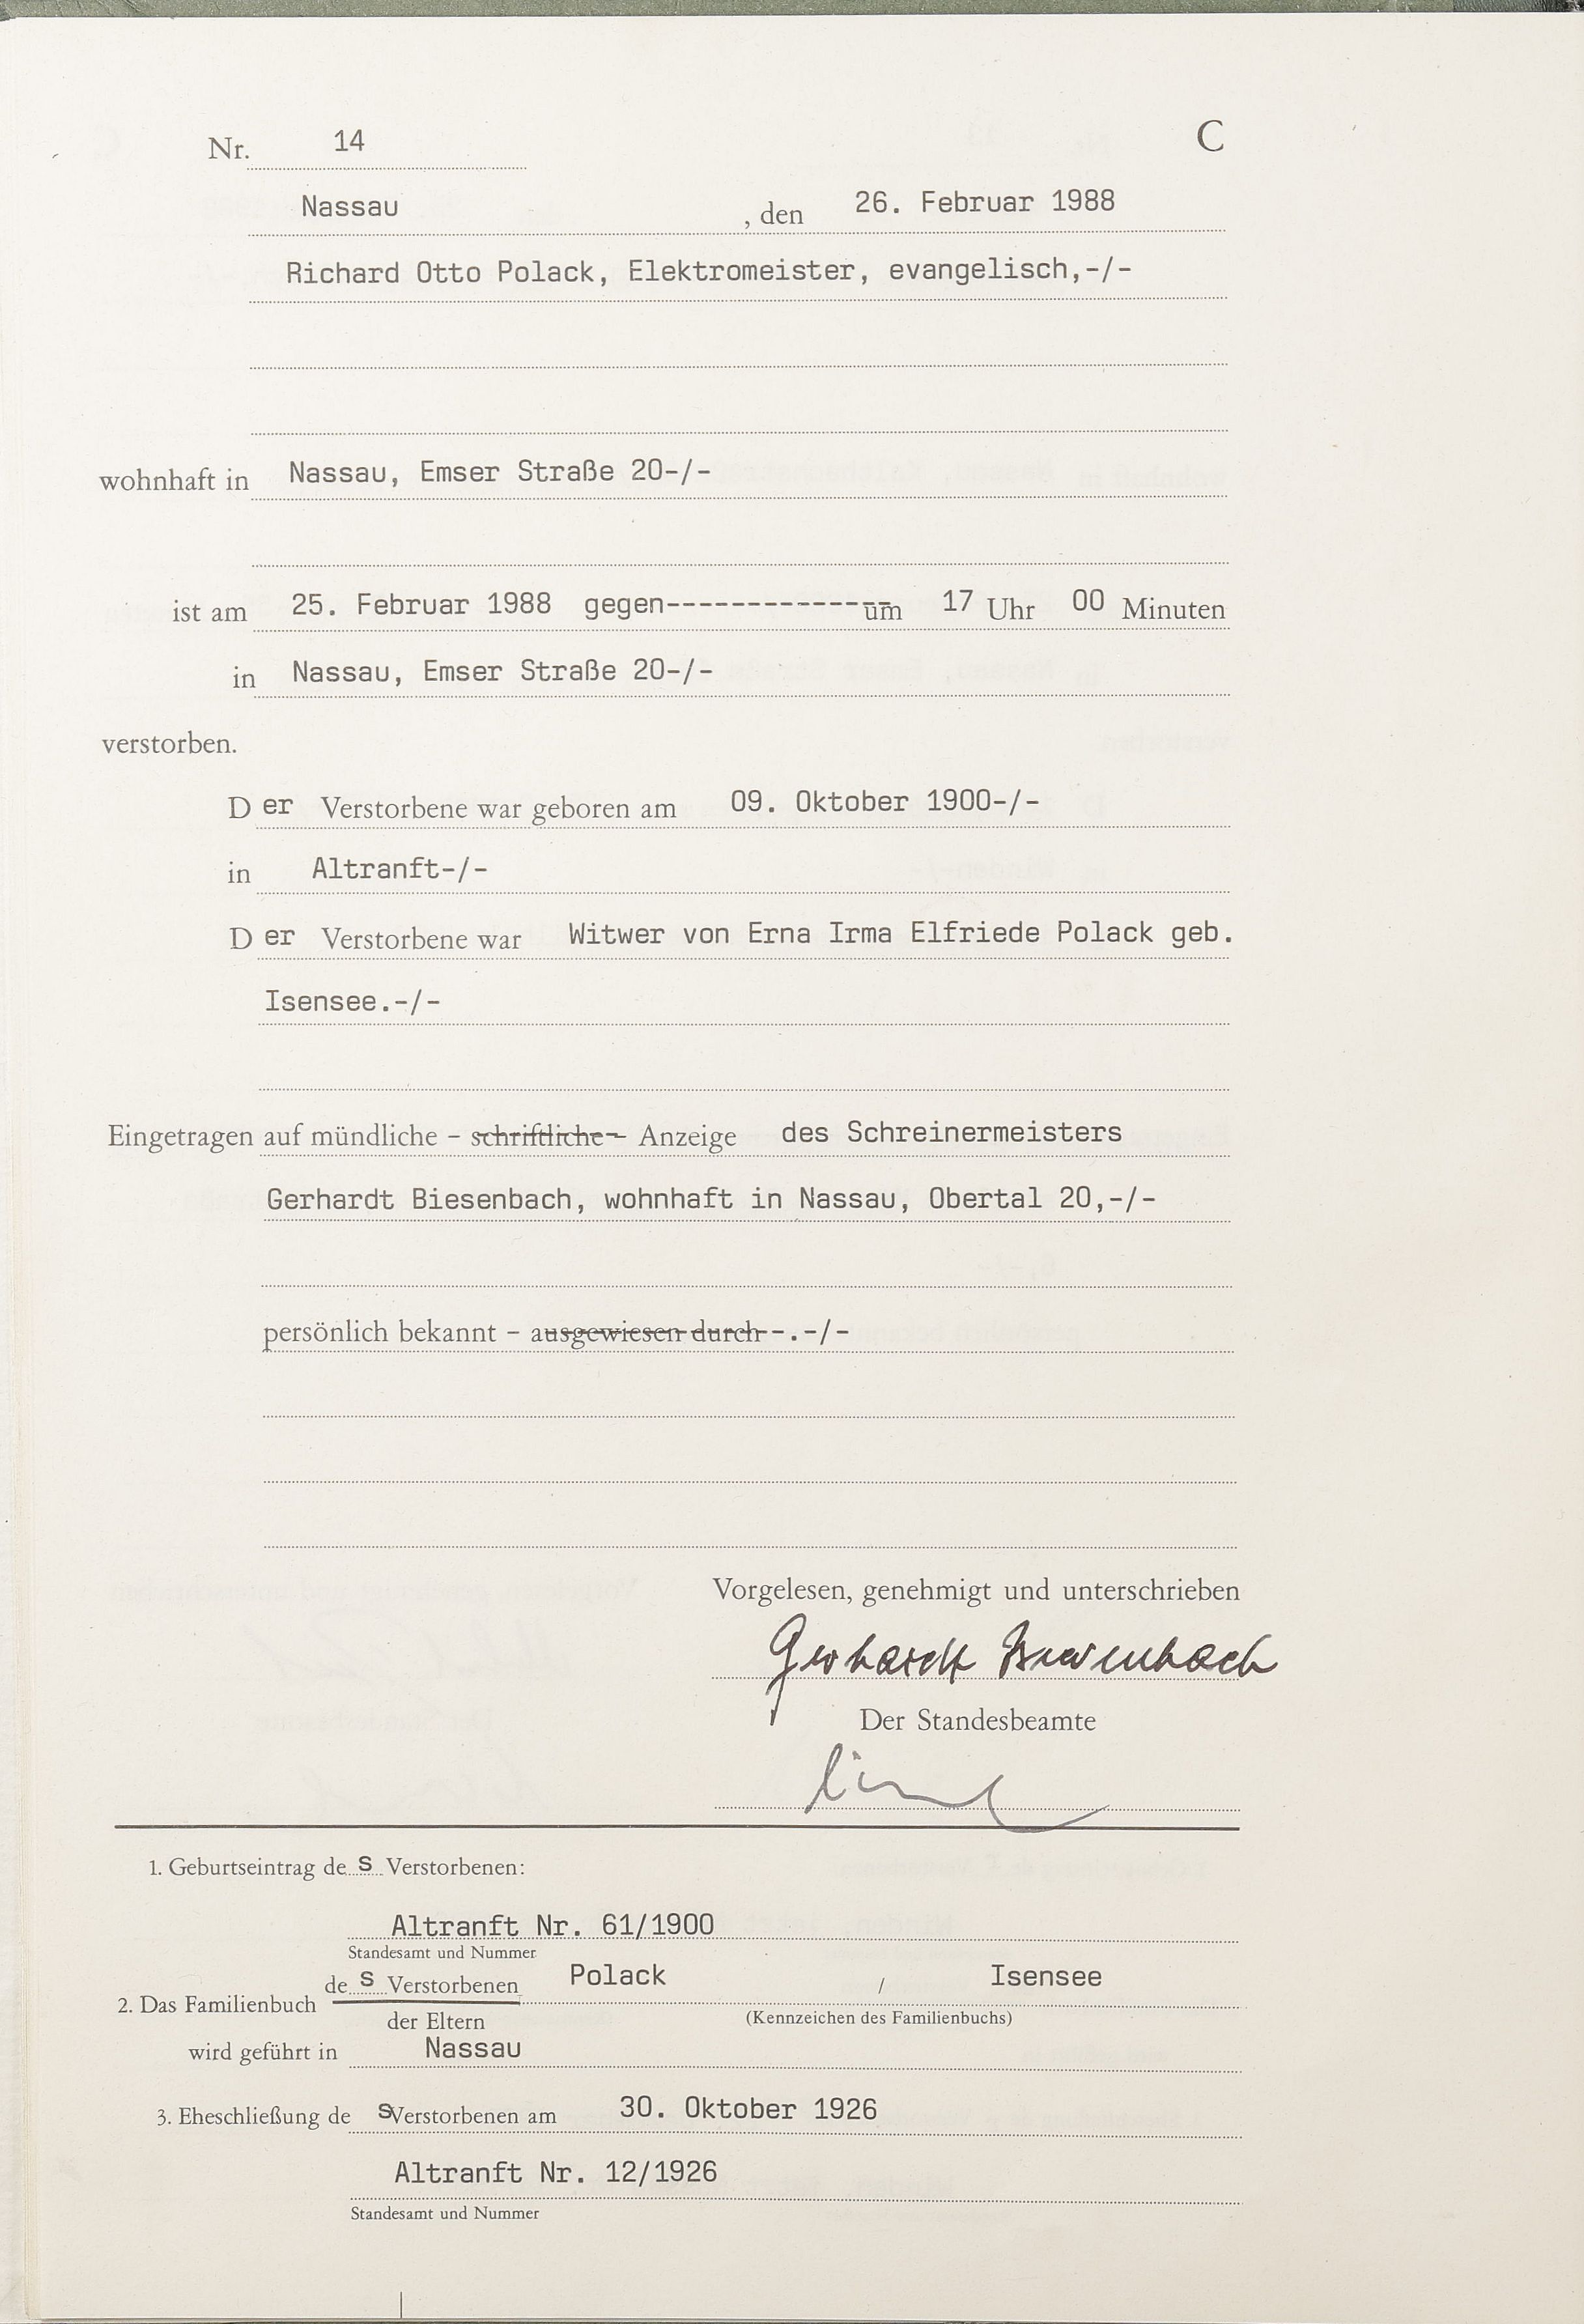 Nr. 14 C
Nassau , den 26. Februar 1988
Richard Otto Polack, Elektromeister, evangelisch,-/-
wohnhaft in Nassau, Emser Straße 20-/-
ist am 25. Februar 1988 gegen-------------- um 17 Uhr 00 Minuten
in Nassau, Emser Straße 20-/-
verstorben.
D er Verstorbene war geboren am 09. Oktober 1900-/-
in Altranft-/-
D er Verstorbene war Witwer von Erna Irma Elfriede Polack geb.
Isensee.-/-
Eingetragen auf mündliche - schriftliche - Anzeige des Schreinermeisters
Gerhardt Biesenbach, wohnhaft in Nassau, Obertal 20,-/-
persönlich bekannt - ausgewiesen durch --.-/-
Vorgelesen, genehmigt und unterschrieben
Gerhardt Biesenbach
Der Standesbeamte
1. Geburtseintrag de s Verstorbenen:
Altranft Nr. 61/1900
Standesamt und Nummer
de s Verstorbenen Polack / Isensee
2. Das Familienbuch
der Eltern (Kennzeichen des Familienbuchs)
wird geführt in Nassau
3. Eheschließung de s Verstorbenen am 30. Oktober 1926
Altranft Nr. 12/1926
Standesamt und Nummer